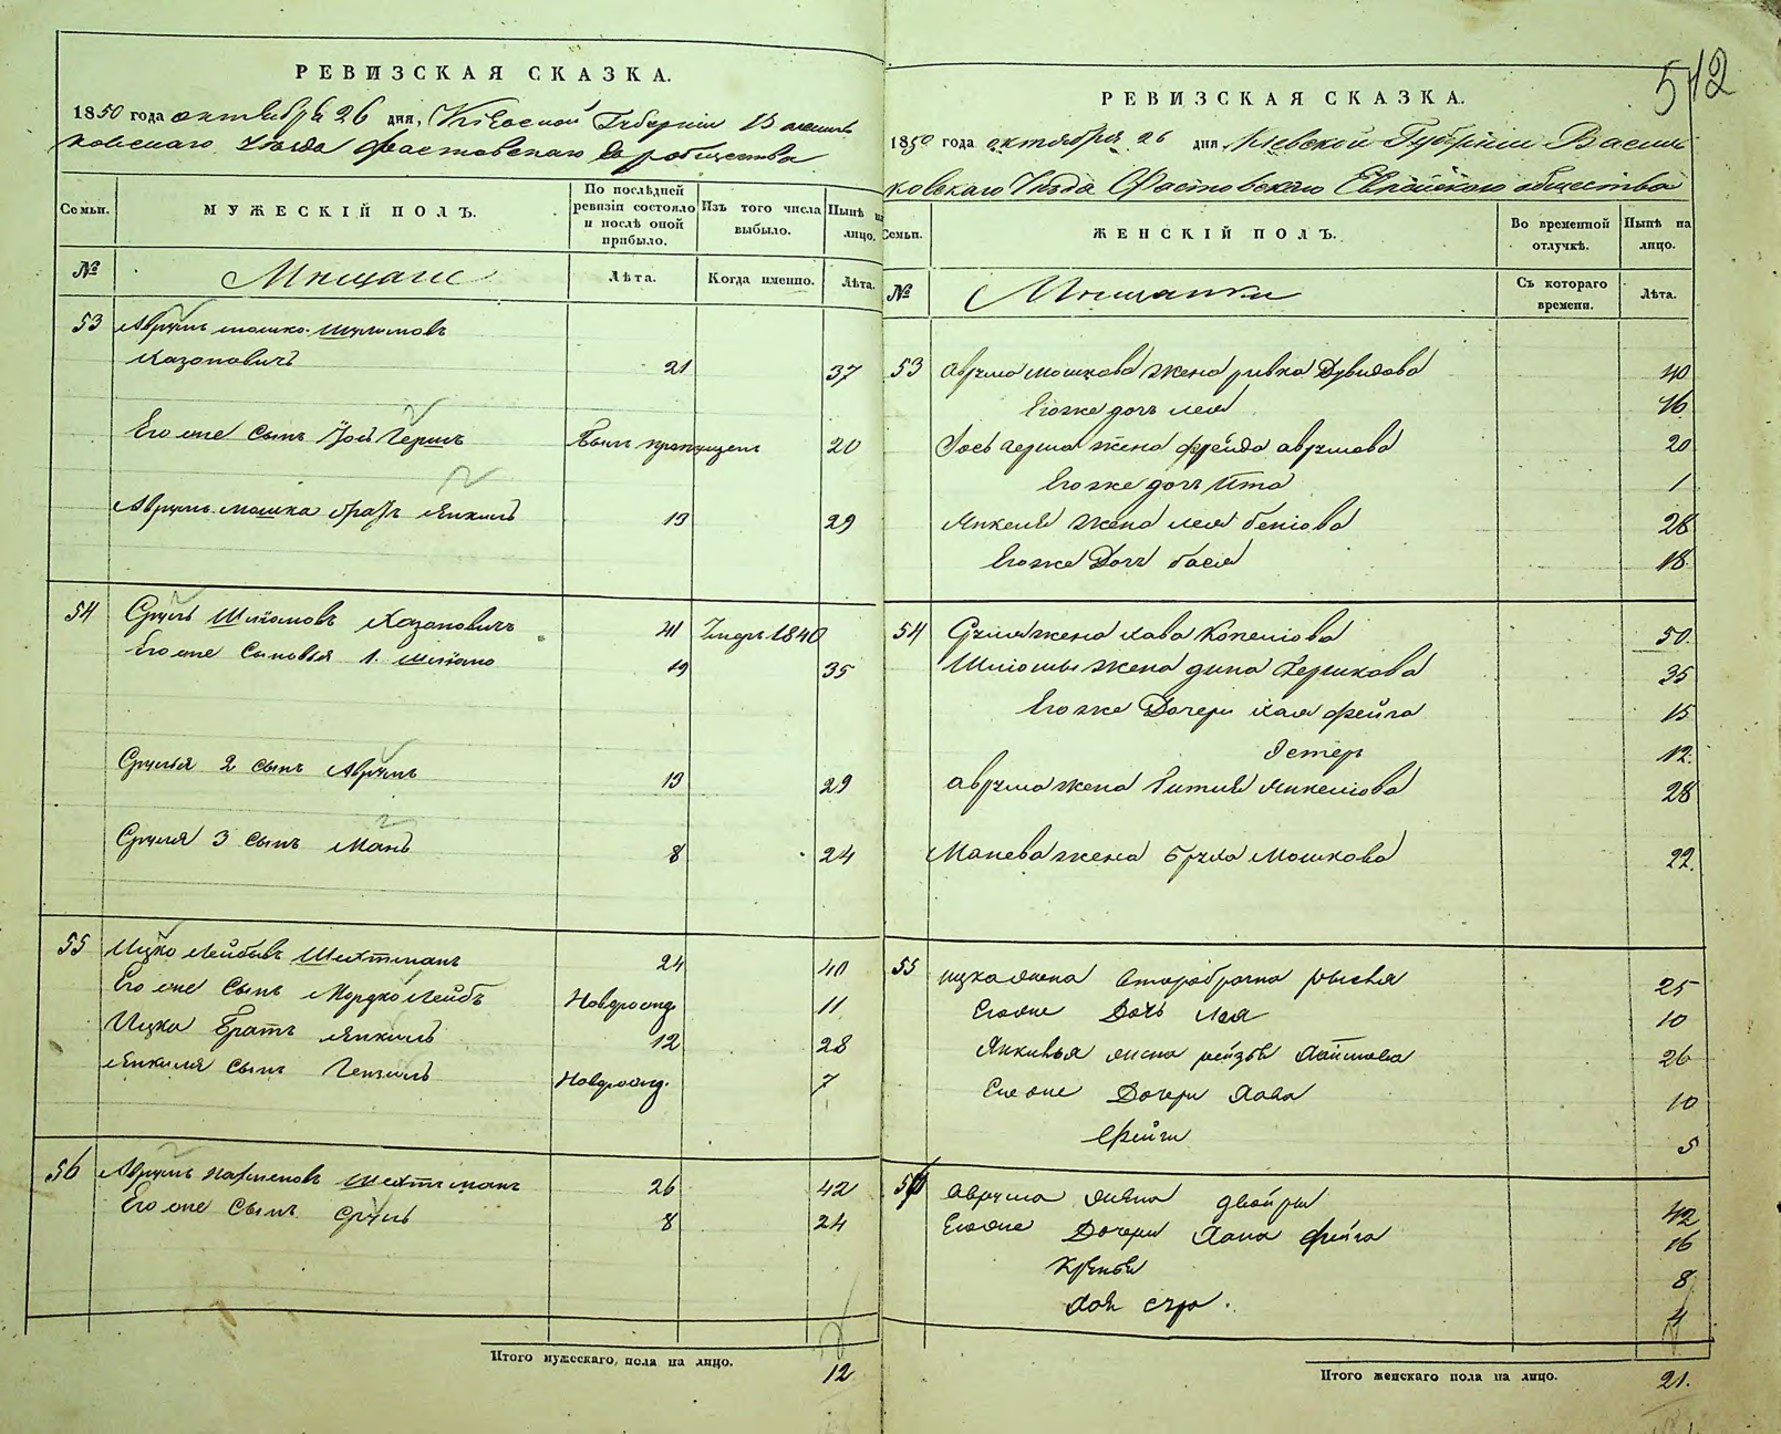 РЕВИЗСКАЯ СКАЗКА.
1850 года октября 26 дня, Кіевской Губерніи Василь
ковскаго Уезда Фастовскаго Ев робщества
Семьи.
МУЖЕСКІЙ ПОЛЪ.
По послѣдней ревизіи состояло и послѣ оной прибыло.
Изъ того числа выбыло.
Нынѣ на лицо.
№
Мещане
Лѣта.
Когда именно.
Лѣта.
53 Аврумъ мошко Шулимовъ
Казановичъ 21 37
Его же сынъ Йось Гершъ Былъ пропущенъ 20
Аврумъ мошка братъ Янкель 13 29
54 Сруль Шлiомовъ Казановичъ 41 Умеръ 1840
Его же сыновья 1. Шлiомо 19 35
Сруля 2 сынъ Аврумъ 13 29
Сруля 3 сынъ Манъ 8 24
55 Ицко Лейбовъ Шехтманъ 24 40
Его же сынъ Мордко Лейбъ Новорожд. 11
Ицка братъ Янкель 12 28
Янкеля сынъ Новорожд. 7
56 Аврумъ Шехтманъ 26 42
Его же сынъ Сруль 8 24
Итого мужескаго пола на лицо. 12
512
РЕВИЗСКАЯ СКАЗКА.
1850 года октября 26 дня, Кіевской Губерніи Василь
ковскаго Уезда Фастовскаго Еврейскаго общества
Семьи.
ЖЕНСКІЙ ПОЛЪ.
Во временной отлучкѣ.
Нынѣ на лицо.
№
Мещанки
Съ котораго времени.
Лѣта.
53 Аврума мошкова жена ривка Дувидова 40
Егоже дочь лея 16
Йось герша жена фрейда аврумова 20
Егоже дочь Ита 1
Янкеля жена лея 28
Егоже Дочь бася 18
54 Сруля жена хава Копелiова 50
Шлiомы жена дина Гершкова 35
Егоже Дочери хая фейга 15
Эстеръ 12
Аврума жена Янкелiова 28
Манева жена бруха Мошкова 22
55 ицка жена второбрачна рысья 25
Егоже Дочь Лея 10
Янкеля жена рейзя 26
Егоже Дочери Хава 10
Фейга 5
56 Аврума жена двойра 42
Егоже Дочери Хана фейга 16
8
Хая сура 4
Итого женскаго пола на лицо. 21.